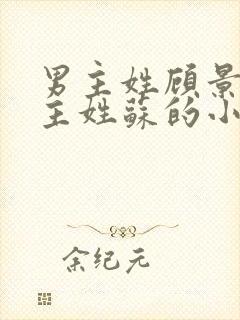 男主姓顾景
主姓蘇的小
余纪元